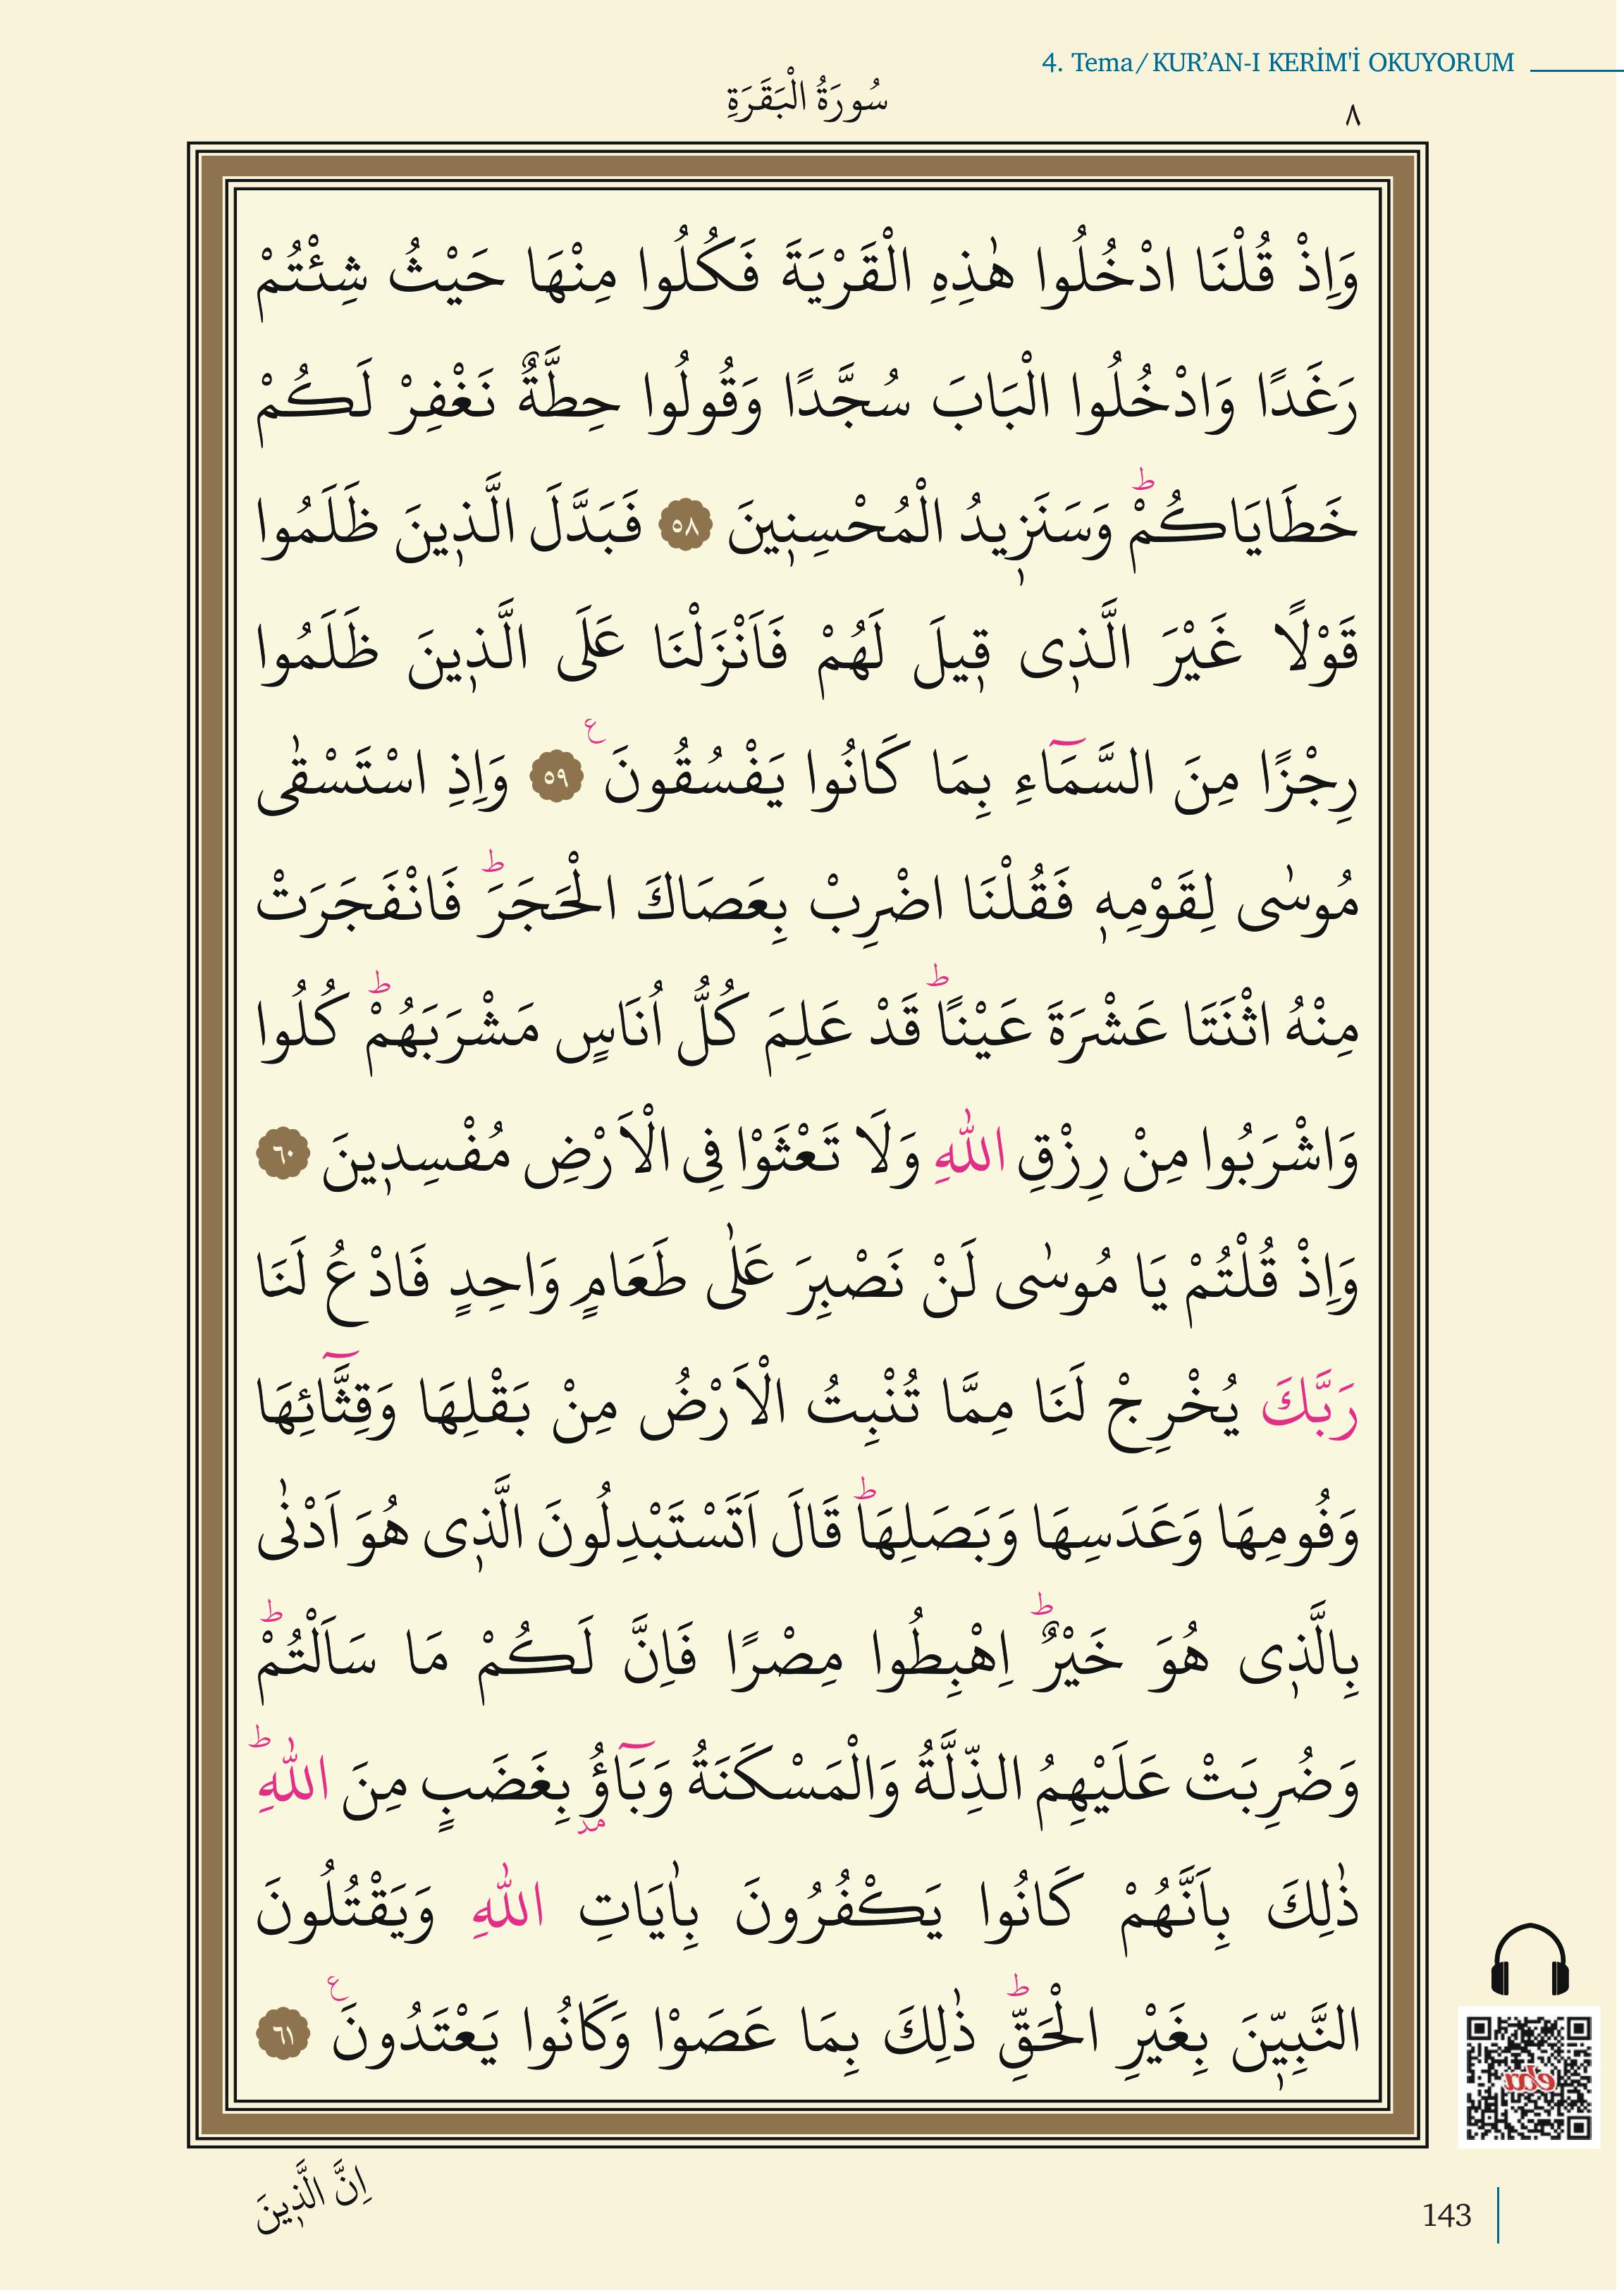 4. Tema/KUR’AN-I KERİM'İ OKUYORUM
سُورَةُ الْبَقَرَةِ
٨
وَاِذْ قُلْنَا ادْخُلُوا هٰذِهِ الْقَرْيَةَ فَكُلُوا مِنْهَا حَيْثُ شِئْتُمْ
رَغَدًا وَادْخُلُوا الْبَابَ سُجَّدًا وَقُولُوا حِطَّةٌ نَغْفِرْ لَكُمْ
خَطَايَاكُمْۜ وَسَنَز۪يدُ الْمُحْسِن۪ينَ ﴿٥٨﴾ فَبَدَّلَ الَّذ۪ينَ ظَلَمُوا
قَوْلًا غَيْرَ الَّذ۪ى ق۪يلَ لَهُمْ فَاَنْزَلْنَا عَلَى الَّذ۪ينَ ظَلَمُوا
رِجْزًا مِنَ السَّمَٓاءِ بِمَا كَانُوا يَفْسُقُونَ ع ﴿٥٩﴾ وَاِذِ اسْتَسْقٰى
مُوسٰى لِقَوْمِه۪ فَقُلْنَا اضْرِبْ بِعَصَاكَ الْحَجَرَۜ فَانْفَجَرَتْ
مِنْهُ اثْنَتَا عَشْرَةَ عَيْنًاۜ قَدْ عَلِمَ كُلُّ اُنَاسٍ مَشْرَبَهُمْۜ كُلُوا
وَاشْرَبُوا مِنْ رِزْقِ اللّٰهِ وَلَا تَعْثَوْا فِى الْاَرْضِ مُفْسِد۪ينَ ﴿٦٠﴾
وَاِذْ قُلْتُمْ يَا مُوسٰى لَنْ نَصْبِرَ عَلٰى طَعَامٍ وَاحِدٍ فَادْعُ لَنَا
رَبَّكَ يُخْرِجْ لَنَا مِمَّا تُنْبِتُ الْاَرْضُ مِنْ بَقْلِهَا وَقِثَّٓائِهَا
وَفُومِهَا وَعَدَسِهَا وَبَصَلِهَاۜ قَالَ اَتَسْتَبْدِلُونَ الَّذ۪ى هُوَ اَدْنٰى
بِالَّذ۪ى هُوَ خَيْرٌۜ اِهْبِطُوا مِصْرًا فَاِنَّ لَكُمْ مَا سَاَلْتُمْۜ
وَضُرِبَتْ عَلَيْهِمُ الذِّلَّةُ وَالْمَسْكَنَةُ وَبَٓاؤُ۫ بِغَضَبٍ مِنَ اللّٰهِۜ
ذٰلِكَ بِاَنَّهُمْ كَانُوا يَكْفُرُونَ بِاٰيَاتِ اللّٰهِ وَيَقْتُلُونَ
النَّبِيّ۪نَ بِغَيْرِ الْحَقِّۜ ذٰلِكَ بِمَا عَصَوْا وَكَانُوا يَعْتَدُونَ ع ﴿٦١﴾
eba
اِنَّ الَّذ۪ينَ
143